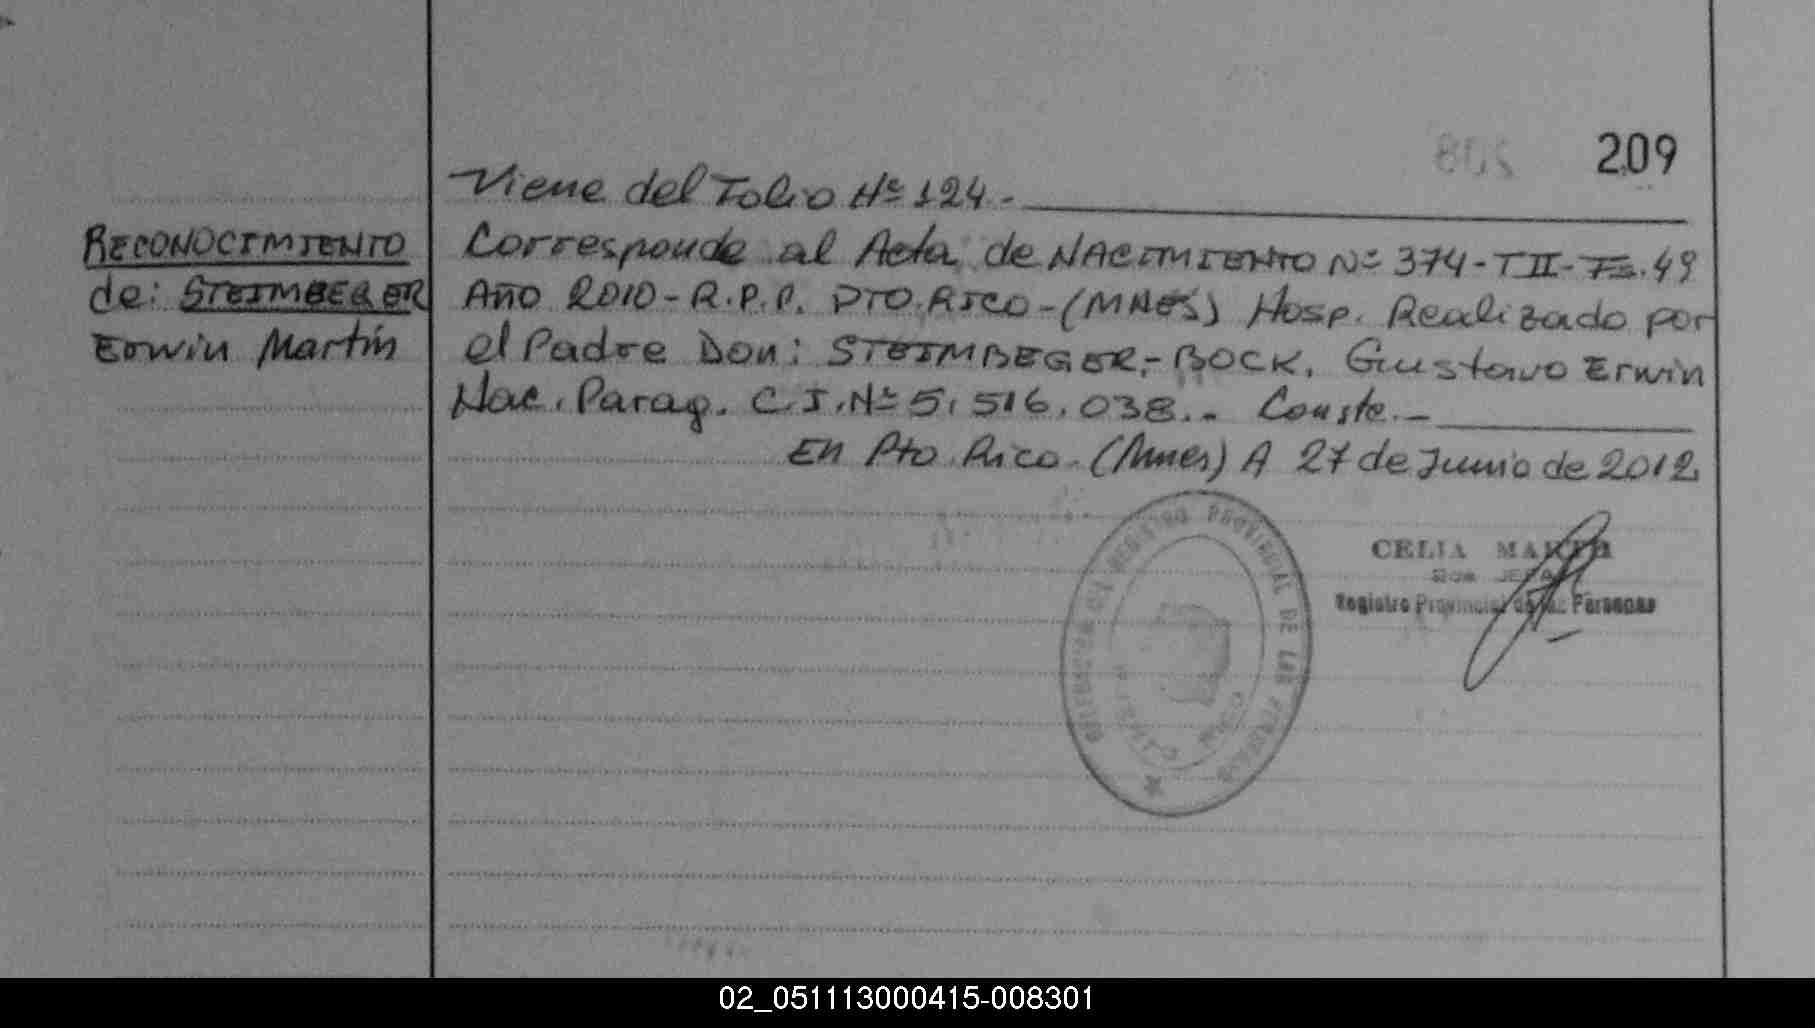 209
Viene del Folio Nº 124.-
RECONOCIMIENTO
de: STEIMBEGER
Erwin Martín
Corresponde al Acta de NACIMIENTO Nº 374-TII-Fs.49
Año 2010-R.P.P. PTO.RICO-(MNES) Hosp. Realizado por
el Padre Don: STEIMBEGER,-BOCK, Gustavo Erwin
Nac. Parag. C.I.Nº 5.516.038.- Conste.-
En Pto. Rico. (Mnes) A 27 de Junio de 2012
CELIA
JEFA
Registro Provincial de las Personas
REGISTRO PROVINCIAL DE LAS PERSONAS
PUERTO RICO
02_051113000415-008301